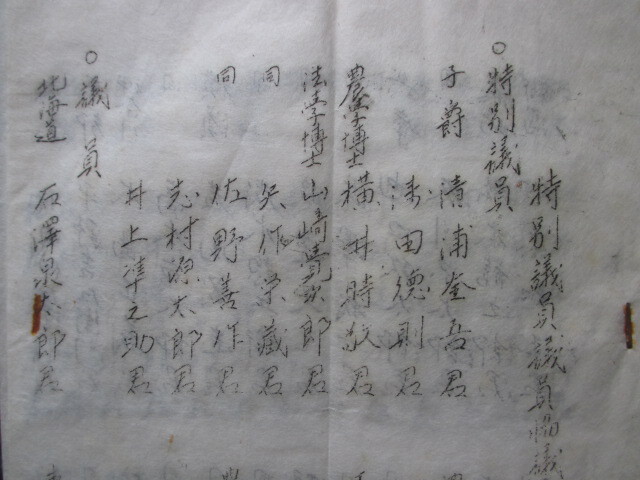 特別議員議員協議
○特別議員
子爵 清浦奎吾君
濤田徳則君
農学博士 横井時敬君
法学博士 山崎覚次郎君
同 矢作栄蔵君
同 佐野善作君
志村源太郎君
井上準之助君
○議員
北海道 石澤泉太郎君